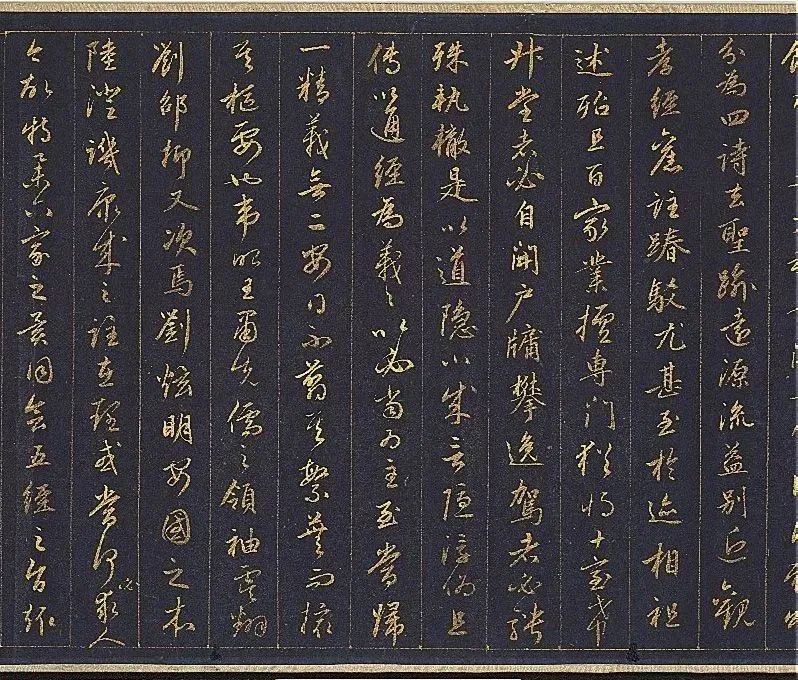 分為四詩去聖踰遠源流益別近觀
孝經舊註踳駮尤甚至於迹相祖
述殆且百家業擅專門猶將十室希
升堂者必自開戶牖攀逸駕者必騁
殊軌轍是以道隱小成言隱浮偽且
傳以通經為義〻以必當為主至當歸
一精義無二安得不翦其繁蕪而撮
其樞要也韋昭王肅先儒之領袖虞翻
劉邵抑又次焉劉炫明安國之本
陸澄譏康成之註在理或當何必求人
今故特舉六家之異同會五經之旨趣